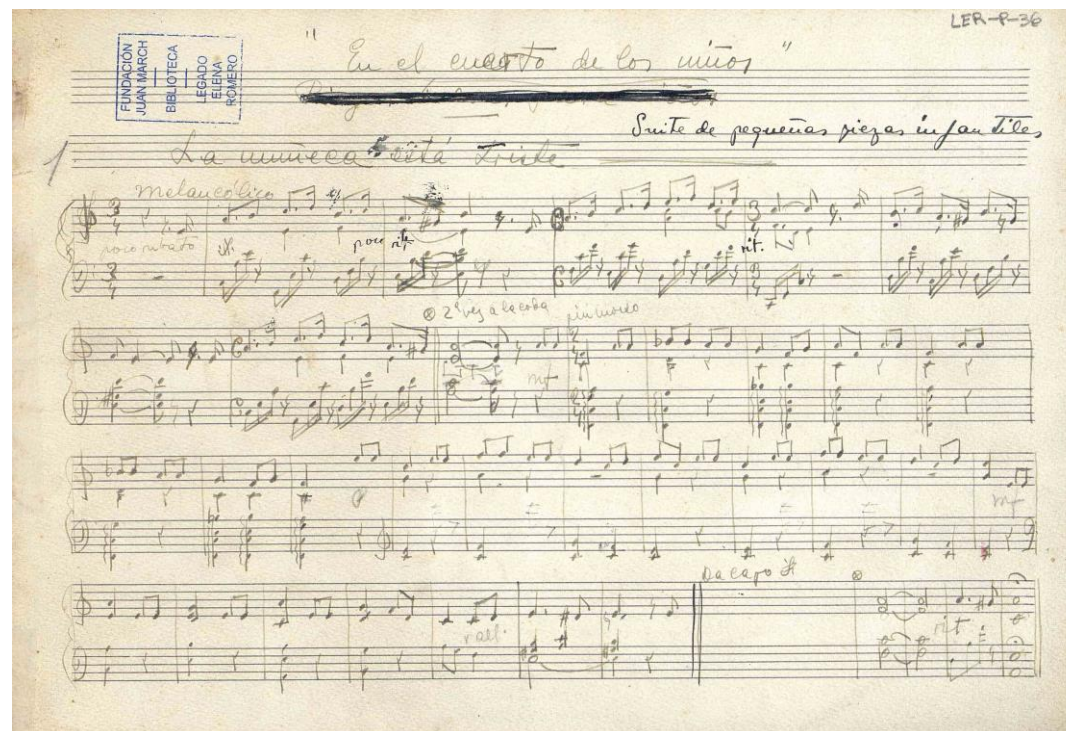 LER-P-36
FUNDACIÓN
JUAN MARCH
BIBLIOTECA
LEGADO
ELENA
ROMERO
"En el cuarto de los niños"
Suite de pequeñas piezas infantiles
1
La muñeca está triste
Melancólico
poco rubato
poco rit.
rit.
2ª vez a la coda
più mosso
mf
mf
Da capo
rall.
rit.